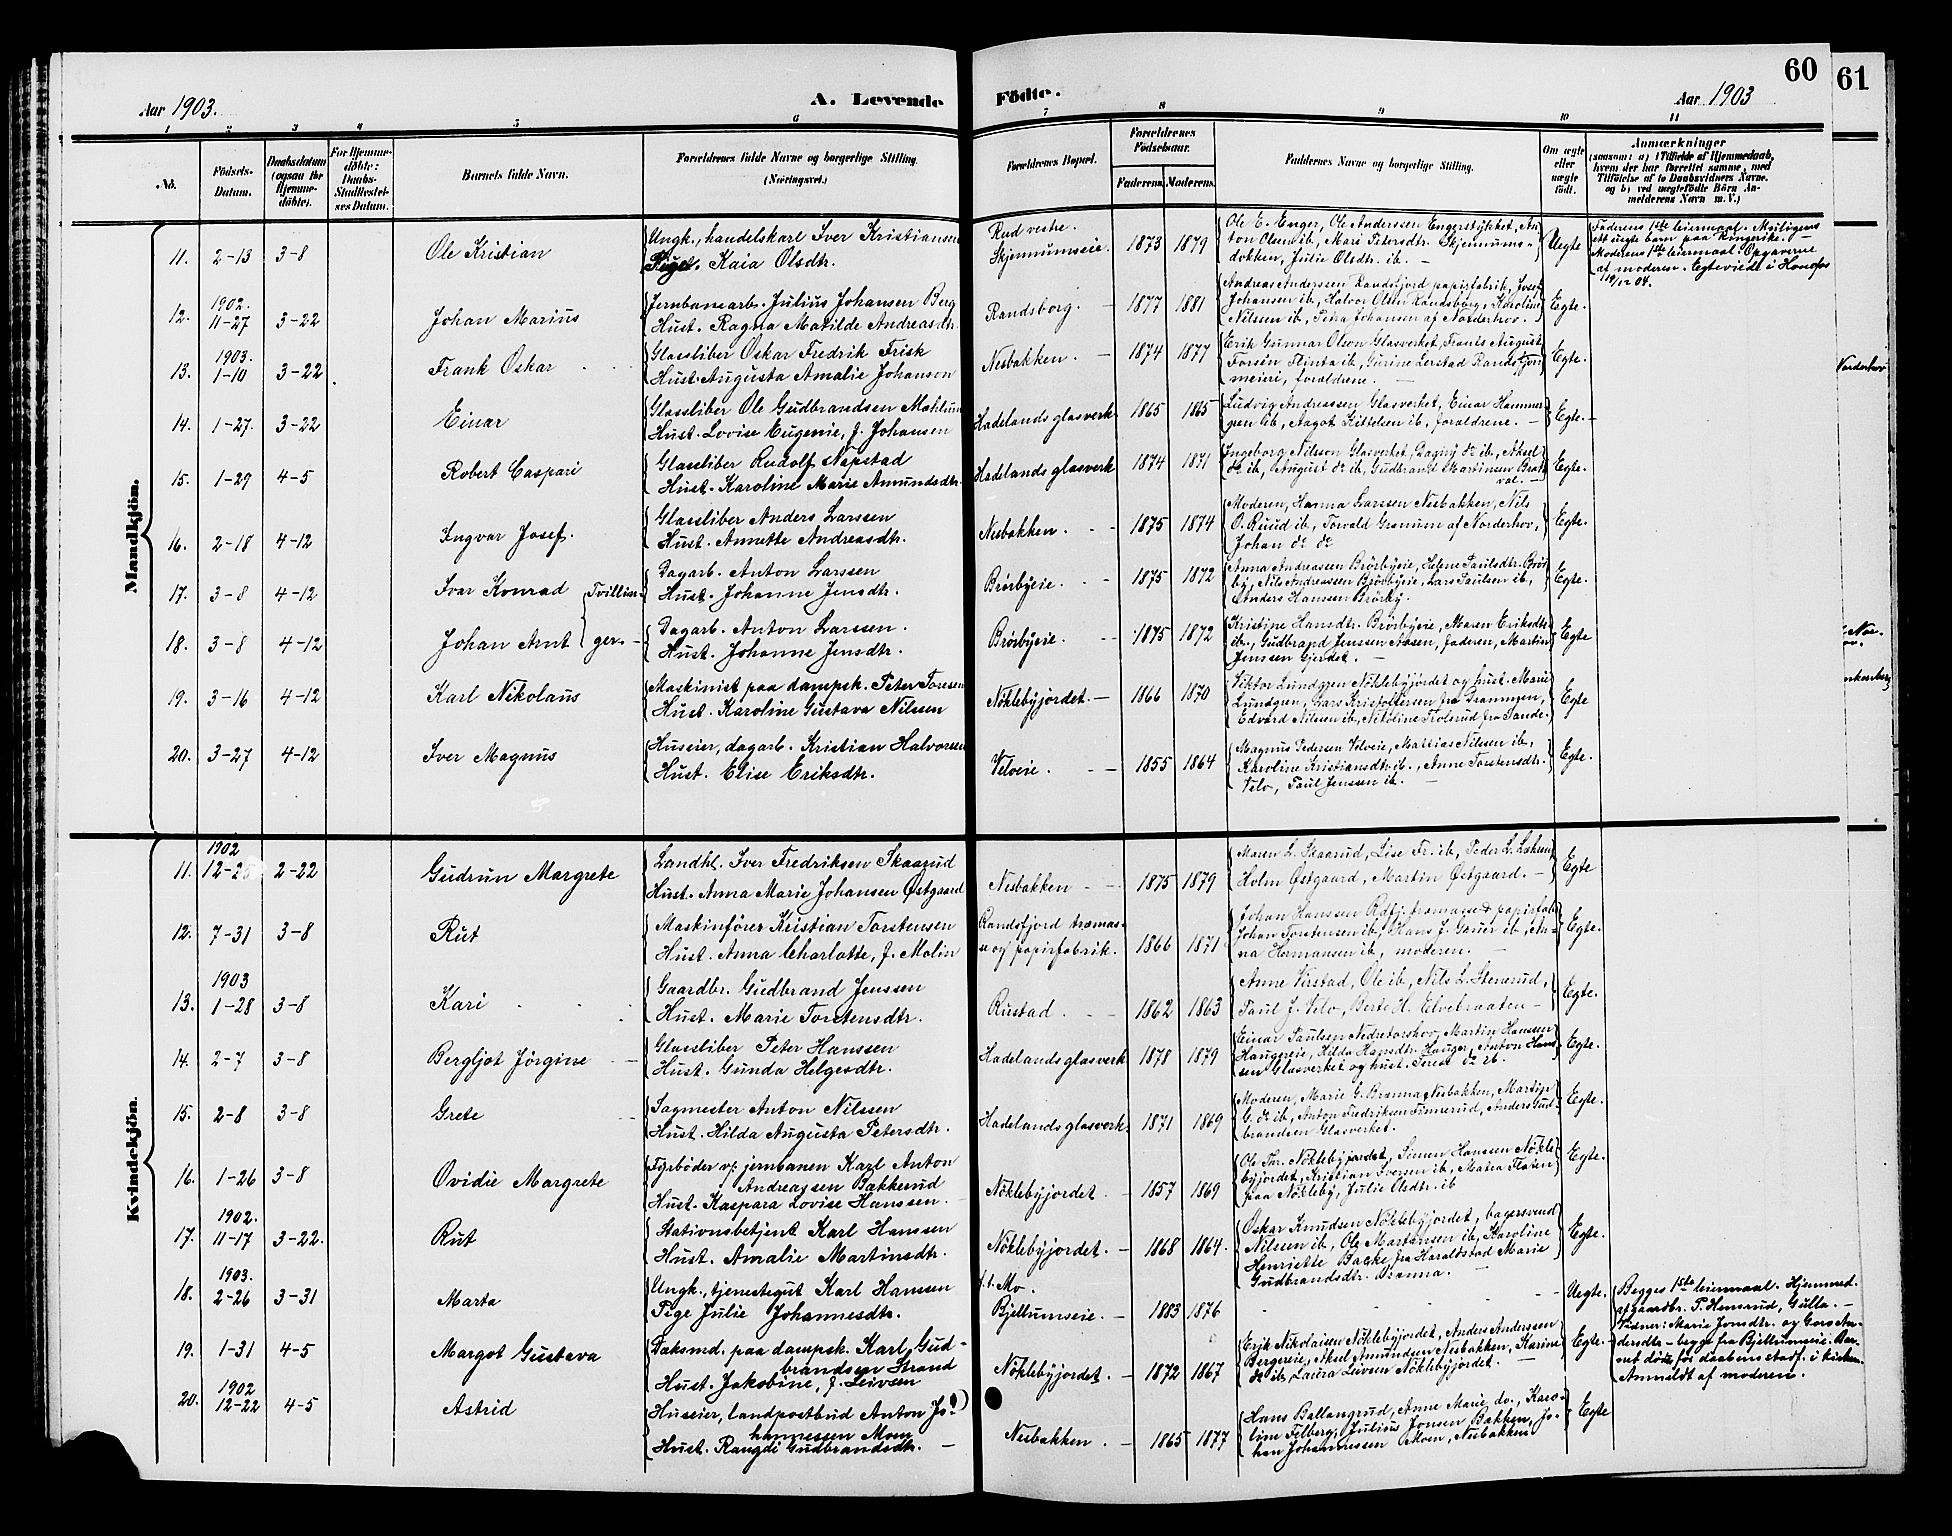 60
61
Aar 1903.
A. Levende
Födte.
Aar 1903
1 2 3 4 5 6 7 8 9 10 11
No.
Födsels-
Datum.
Daabsdatum
(ogsaa for
Hjemme-
döbte).
For Hjemme-
döbte:
Daabs-
Stadfæstel-
ses Datum.
Barnets fulde Navn.
Forældrenes fulde Navne og borgerlige Stilling.
(Næringsvei.)
Forældrenes Bopæl.
Forældrenes
Födselsaar.
Faderens. Moderens.
Faddernes Navne og borgerlige Stilling.
Om ægte
eller
uægte
födt.
Anmærkninger
(saasom: a) i Tilfælde af Hjemmedaab,
hvem der har forrettet samme, med
Tilföielse af to Daabsvidners Navne,
og b) ved uægtefödte Börn An-
melderens Navn m. V.)
Mandkjön.
11. 2-13 3-8 Ole Kristian
Ungk., handelskarl Iver Kristiansen
Pige. Kaia Olsdtr.
Rud vestre.
Skjennumseie. 1873 1879
Ole E. Enger, Ole Anderssen Engerstykket, An-
ton Olsen ib., Mari Petersdtr. Skjennums-
dokken, Julie Olsdtr. ib. -
Uegte
Faderens 1ste leiermaal. Muligens
ett uegte barn paa Ringerike. -
Moderens 1ste leiermaal. Opgaverne
af moderen. Egteviede i Honefos
19/12 04.
12. 1902. 11-27 3-22 Johan Marius
Jernbanearb. Julius Johansen Berg
Hust. Ragna Matilde Andreasdtr.
Randsborg. 1877 1881
Andreas Anderssen Randsfjord papirfabrik, Josef
Johansen ib., Halvor Olsen Randsborg, Karoline
Nilssen ib., Petra Johansen af Norderhov.
Egte.
13. 1903. 1-10 3-22 Frank Oskar
Glassliber Oskar Fredrik Frisk
Hust. Augusta Amalie Johanson
Nesbakken. 1874 1877
Erik Gunnar Olson Glasverket, Frants August
Forsèn Flinta ib., Gurine Lerstad Randsfjord
meieri, foraldrene. -
Egte.
14. 1-27. 3-22 Einar
Glassliber Ole Gudbrandsen Mohlun
Hust. Lovise Eugenie, f. Johansen
Hadelands glasverk 1865 1865
Ludvig Andreassen Glasverket, Einar Hammer-
gren ib., Aagot Kittelsen ib., foraldrene. -
Egte.
15. 1-29 4-5 Robert Caspari
Glassliber Rudolf Napstad
Hust. Karoline Marie Amundsdtr.
Hadelands glasverk 1874 1871
Ingeborg Nilsson Glasverket, Dagny do ib., Aksel
do ib., August do ib., Gudbrand Martinsen Brat-
val. -
Egte.
16. 2-18 4-12 Ingvar Josef.
Glassliber Anders Larssen
Hust. Annette Andreasdtr.
Nesbakken. 1875 1874
Moderen, Hanna Larssen Nesbakken, Nils
O. Ruud ib., Torvald Granum af Norderhov,
Johan do do
Egte.
17. 3-8 4-12 Ivar Konrad Tvillin-
Dagarb. Anton Larssen
Hust. Johanne Jensdtr.
Brørbyeie. 1875 1872
Anna Andreassen Brørbyeie, Helene Paulsdtr. Brør-
by, Nils Andreassen Brørbyeie, Lars Paulsen ib.,
Anders Hanssen Brørby.
Egte.
18. 3-8 4-12 Johan Arnt ger.-
Dagarb. Anton Larssen.
Hust. Johanne Jensdtr.
Brørbyeie. 1875 1872
Kristine Hansdtr. Brørbyeie, Maren Eriksdtr.
ib., Gudbrand Jenssen Aasen, faderen, Martin
Jenssen Gjerdet. -
Egte
19. 3-16 4-12 Karl Nikolaus
Maskinist paa dampsk. Peter Toresen
Hust. Karoline Gustava Nilssen
Nøklebyjordet. - 1866 1870
Viktor Lundgren Nøklebyjordet og hust. Marie
Lundgren, Lars Kristoffersen fra Drammen,
Edvard Nilssen ib., Nikoline Trolsrud fra Sande.
Egte
20. 3-27 4-12 Iver Magnus
Huseier, dagarb. Kristian Halvorsen
Hust. Elise Eriksdtr.
Velveie. 1855 1864
Magnus Pedersen Velveie, Mattias Nilssen ib.,
Karoline Kristiansdtr. ib., Anne Torstensdtr.
Velo, Paul Jenssen ib. -
Egte.
Kvindekjön.
11. 1902 12-25 2-22 Gudrun Margrete
Landhl. Iver Fredriksen Skaarud
Hust. Anna Marie Johansen Østgaard
Nesbakken 1875 1879
Maren L. Skaarud, Lise Fr. ib., Peder L.
Holm Østgaard, Martin Østgaard. -
Egte
12. 7-31 3-8 Rut
Maskinfører Kristian Torstensen
Hust. Anna Charlotte, f. Molin
Randsfjord træmas-
se og papirfabrik. 1866 1871
Johan Hanssen Rdfj. træmasse & papirfab.
Johan Torstensen ib., Hans J. Gauer ib., An-
na Hermansen ib., moderen. -
Egte.
13. 1903 1-28 3-8 Kari
Gaardbr. Gudbrand Jenssen
Hust. Marie Torstensdtr.
Rustad. 1862 1863
Anne Virstad, Ole ib., Nils L. Stenerud,
Paul J. Velo, Berte H. Elvebraaten -
Egte.
14. 2-7 3-8 Bergljot Jørgine
Glassliber Peter Hanssen
Hust. Gunda Helgesdtr.
Hadelands glasverk 1878 1879
Einar Paulsen Nedretorskov, Martin Hanssen
Haugereie, Hilda Hansdtr. Hauger, Anton Hans-
sen Glasverket og hust. Terese do ib.
Egte.
15. 2-8 3-8 Grete
Sagmester Anton Nilssen
Hust. Hilda Augusta Petersdtr.
Hadelands glasverk. 1871 1869
Moderen, Marie G. Brænna Nesbakken, Martin
G. do ib., Anton Fredriksen Finnerud, Anders Gud-
brandsen Glasverket.
Egte.
16. 1-26 3-8 Ovidie Margrete
Fyrbøder v/ jernbanen Karl Anton
Andreassen Bakkerud
Hust. Kaspara Lovise Hanssen.
Nøklebyjordet. 1857 1869
Ole Thr. Nøklebyjordet, Simen Hanssen Nøkle-
byjordet, Kristian Iversen ib., Maria Flaten
paa Nøkleby, Julie Olsdtr. ib
Egte.
17. 1902. 11-17 3-22. Rut
Stationsbetjent Karl Hanssen
Hust. Amalie Martinsdtr.
Nøklebyjordet. 1868 1864.
Oskar Knudsen Nøklebyjordet, bagersvend
Nilssen ib., Ole Martinsen ib., Karoline
Henriette Bakke fra Haraldstad Marie
Gudbrandsdtr. Brænna. -
Egte.
18. 1903. 2-26 3-31 Marta
Ungk., tjenestegut Karl Hanssen
Pige Julie Johannesdtr.
f. t. Mo.
Bjellumseie - 1883 1876
Uegte.
Begges 1ste leiermaal. Hjemmed.
af gaardbr. P. Hensrud, Gulla. -
Vidner: Marie Jonsdtr. og Goro An-
dersdtr - begge fra Bjellumseie. Bar-
net døde før daabens stadf. i kirken.
Anmeldt af moderen.
19. 1-31 4-5 Margot Gustava
Daksmd. paa dampsk. Karl Gud-
brandsen Strand
Hust. Jakobine, f. Leivsen
Nøklebyjordet. 1872 1867
Erik Nikolaisen Nøklebyjordet, Anders Anderssen
Bergereie, Aksel Amundsen Nesbakken, Karine
do ib., Laura Leivsen Nøklebyjordet. -
Egte.
20. 1902 12-22 4-5 Astrid
Huseier, landpostbud Anton Jo-
hannessen Moen
Hust. Rangdi Gudbrandsdtr. -
Nesbakken. 1865 1877
Hans Ballangrud, Anne Marie do., Karo-
line Felberg, Julius Jonsen Bakken, Jo-
han Johannessen Moen, Nesbakken
Egte
Norderhov